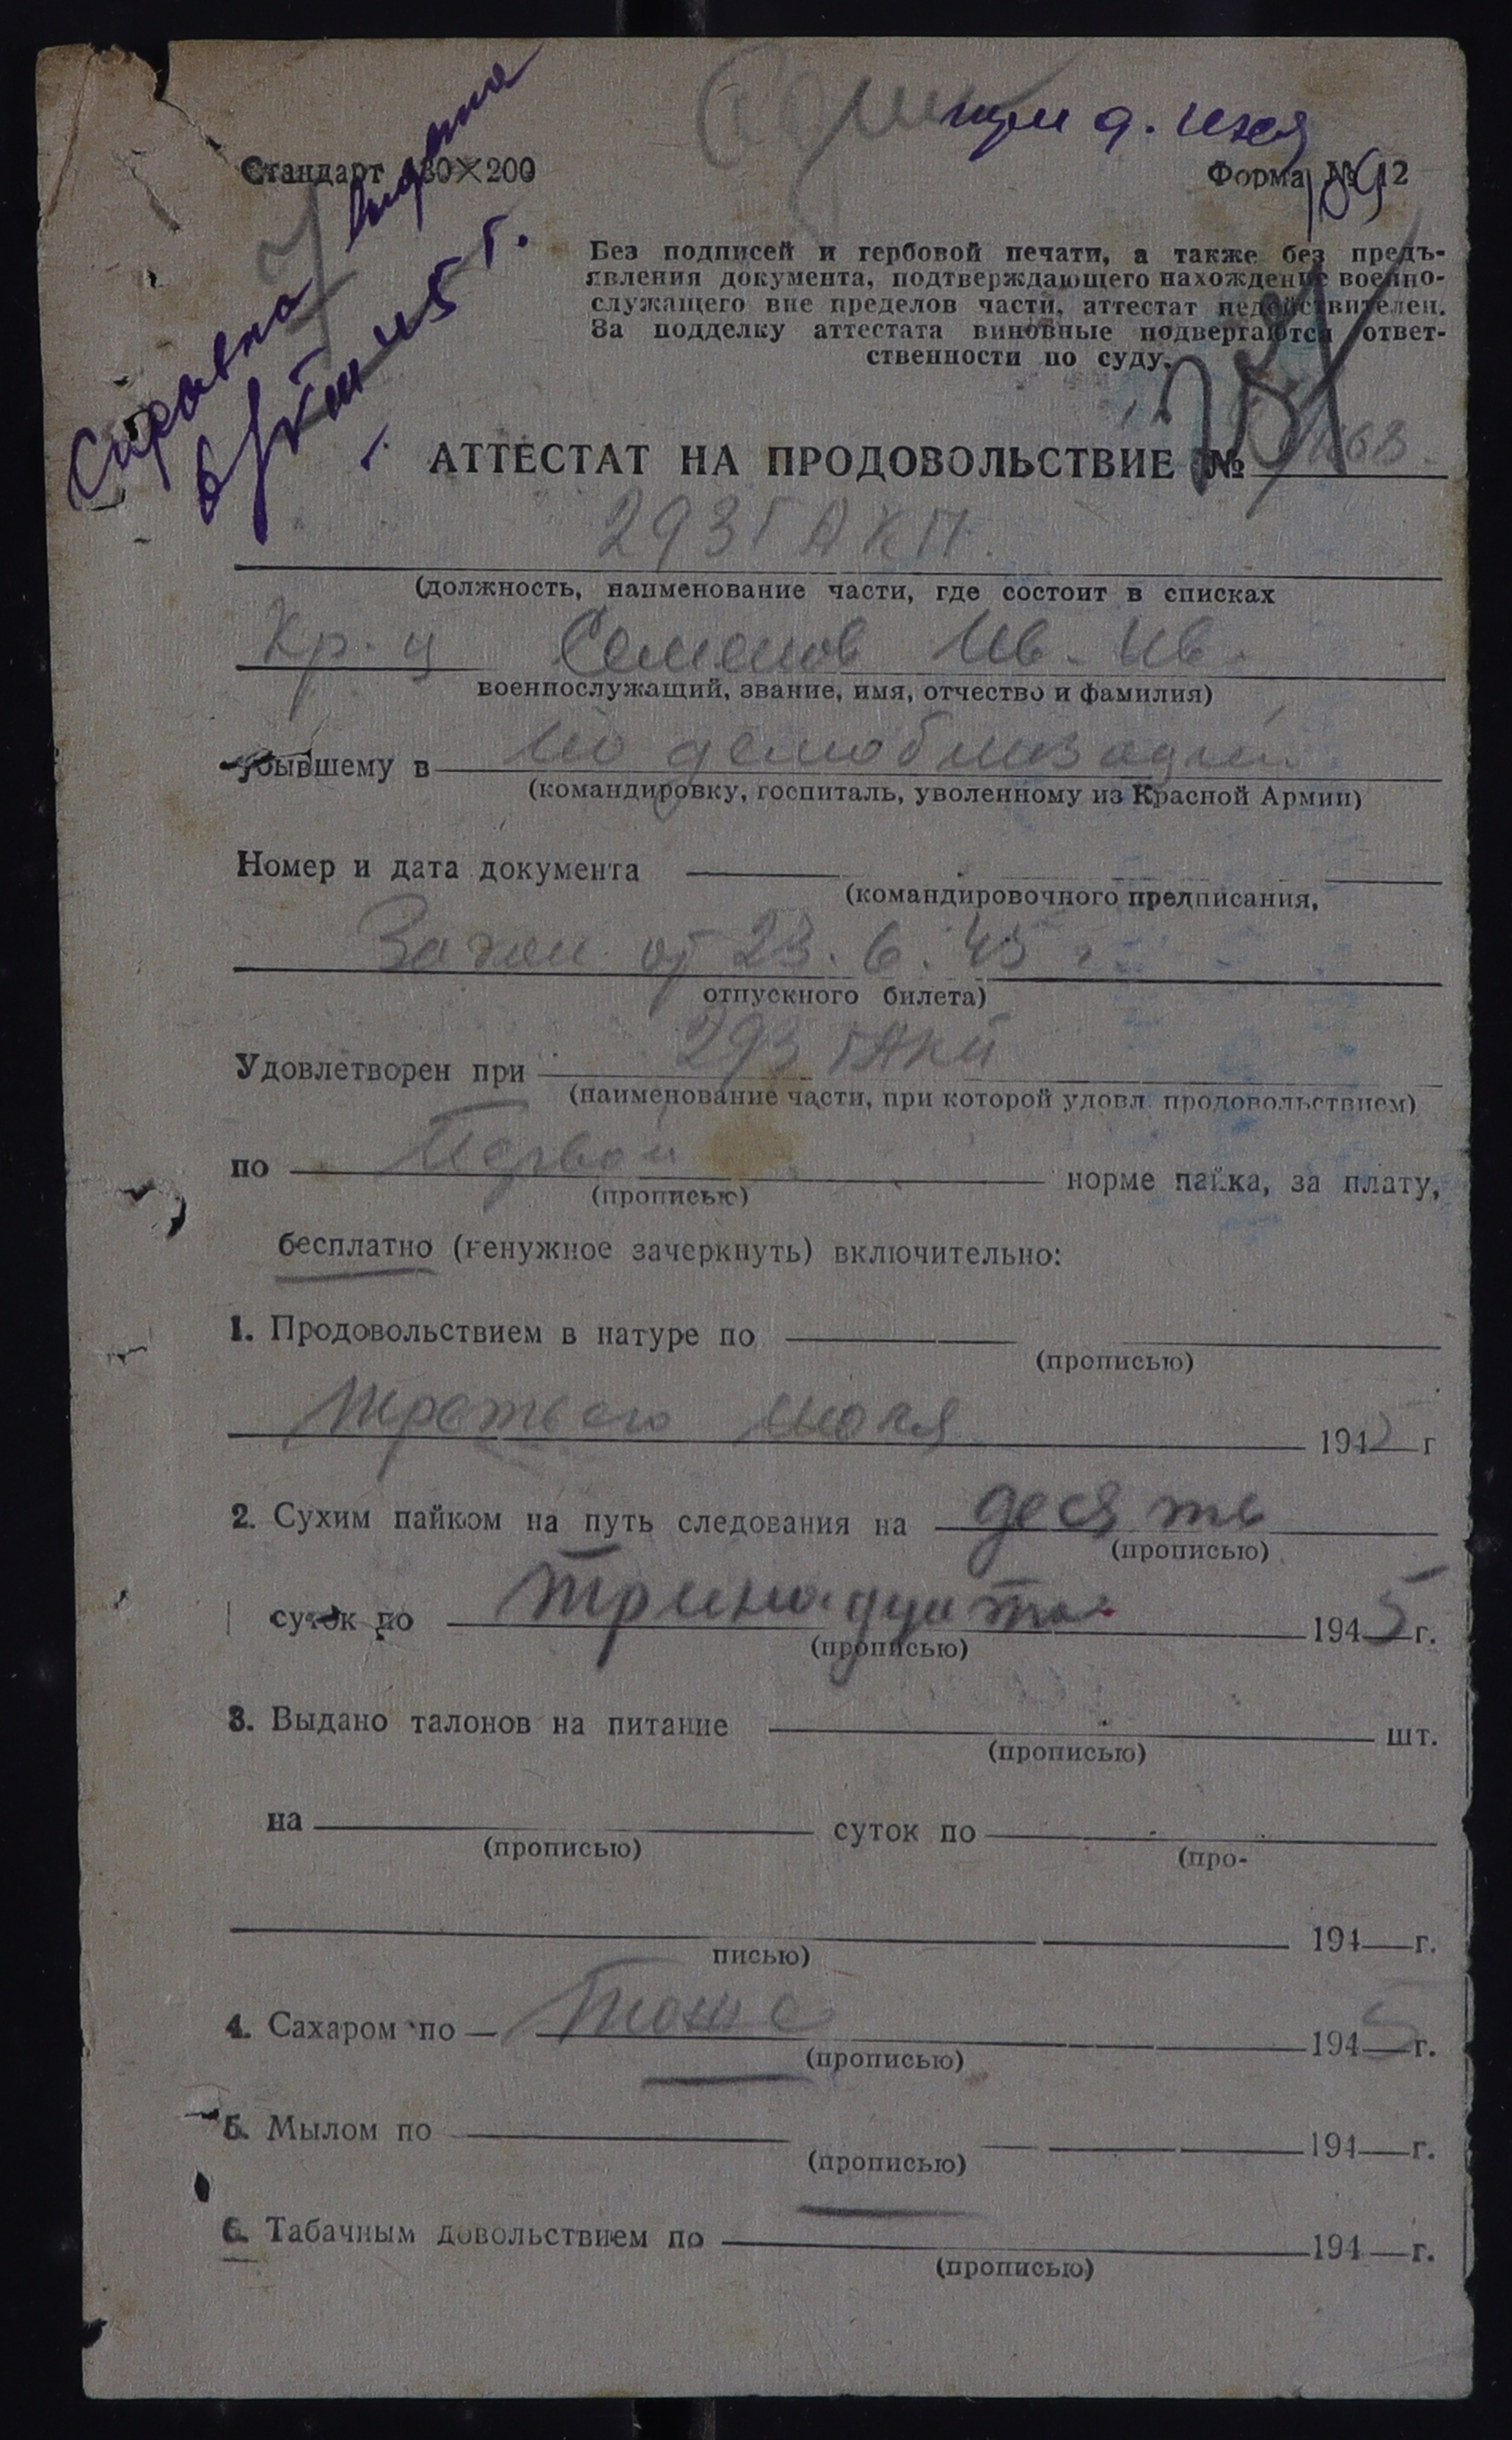 Справка выдана
6/VIII-45 г.
Стандарт 130×200
Форма № 12
Без подписей и гербовой печати, а также без предъ-
явления документа, подтверждающего нахождение военно-
служащего вне пределов части, аттестат недействителен.
За подделку аттестата виновные подвергаются ответ-
ственности по суду.
АТТЕСТАТ НА ПРОДОВОЛЬСТВИЕ №
293 ГАКП.
(должность, наименование части, где состоит в списках
Кр-ц Семенов Ив. Ив.
военнослужащий, звание, имя, отчество и фамилия)
убывшему в По демобилизации
(командировку, госпиталь, уволенному из Красной Армии)
Номер и дата документа
(командировочного предписания,
Закон от 23.6.45 г.
отпускного билета)
Удовлетворен при 293 ГАКП
(наименование части, при которой удовл. продовольствием)
по Первой норме пайка, за плату,
(прописью)
бесплатно (ненужное зачеркнуть) включительно:
1. Продовольствием в натуре по
(прописью)
третьего июля 1945 г
2. Сухим пайком на путь следования на десять
(прописью)
суток по тринадцатое 1945 г.
(прописью)
3. Выдано талонов на питание шт.
(прописью)
на суток по
(прописью) (про-
194 г.
писью)
4. Сахаром по — Тоже 1945 г.
(прописью)
5. Мылом по 194 г.
(прописью)
6. Табачным довольствием по 194 г.
(прописью)